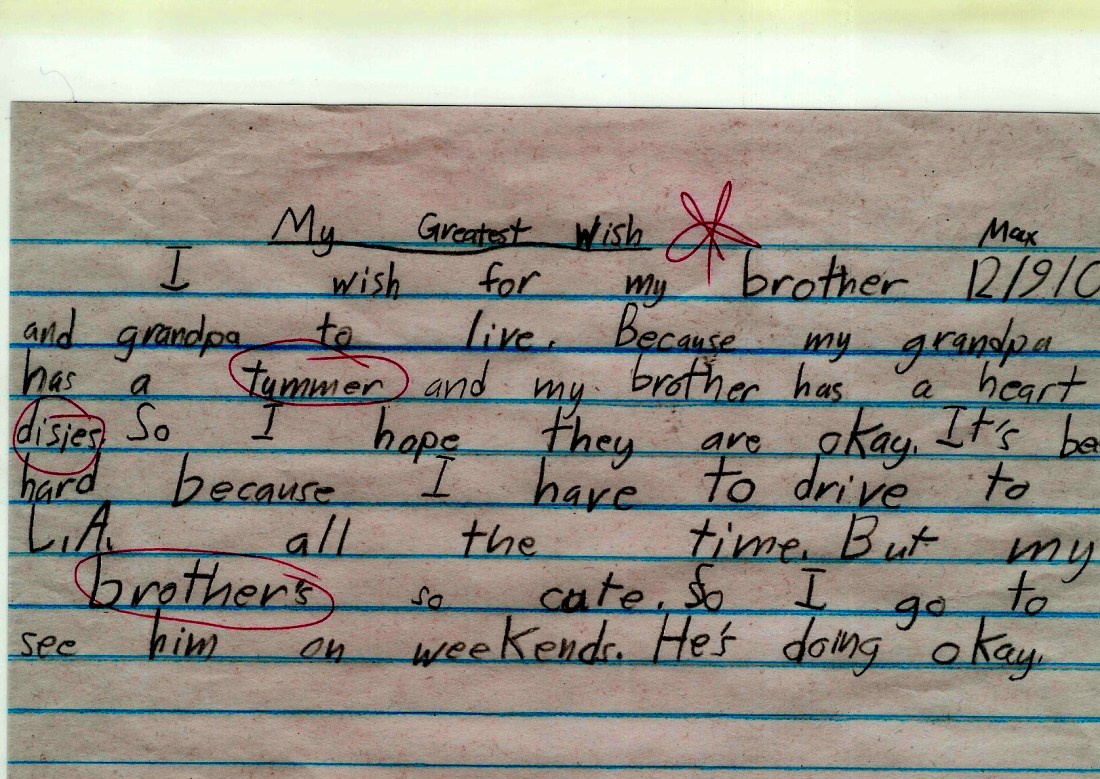 My Greatest Wish
Max
I wish for my brother 12/9/0
and grandpa to live. Because my grandpa
has a tummer and my brother has a heart
disies. So I hope they are okay. It's be
hard because I have to drive to
L.A. all the time. But my
brother's so cute. So I go to
see him on weekends. He's doing okay.